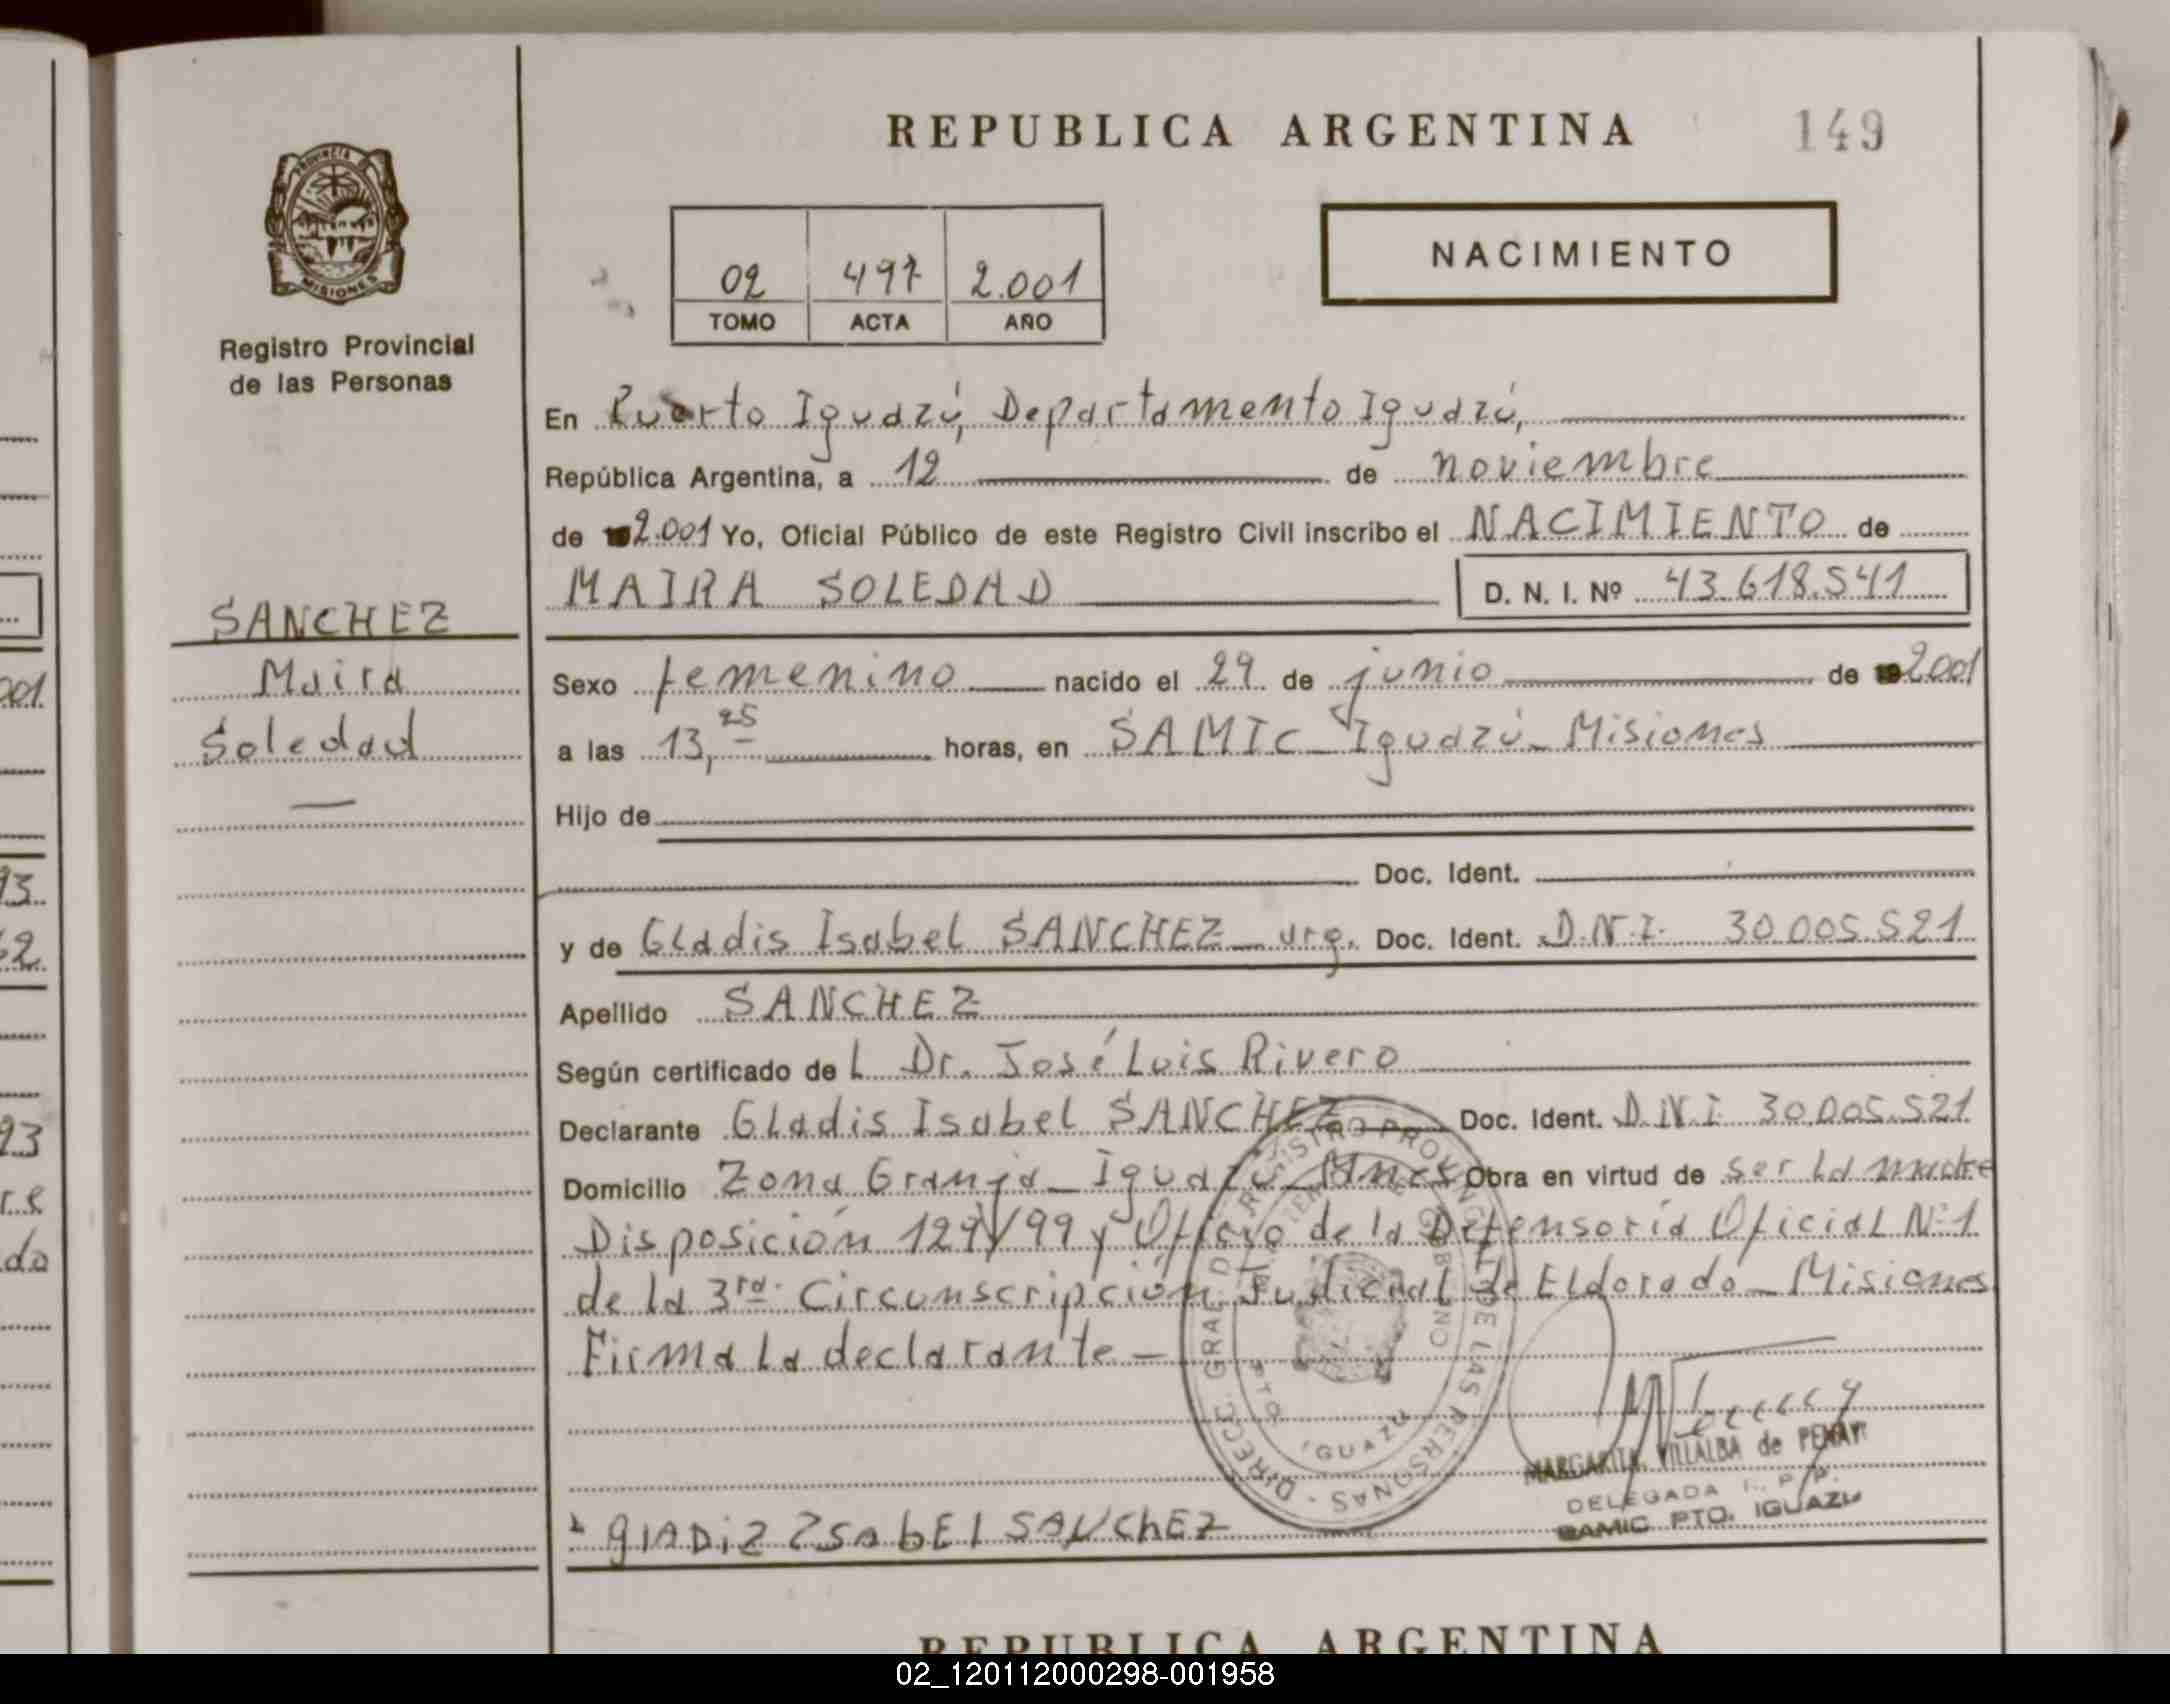 REPUBLICA ARGENTINA
149
PROVINCIA DE
MISIONES
Registro Provincial
de las Personas
02 497 2.001
TOMO ACTA AÑO
NACIMIENTO
En Puerto Iguazú, Departamento Iguazú,
República Argentina, a 12 de noviembre
de 19 2.001 Yo, Oficial Público de este Registro Civil inscribo el NACIMIENTO de
MAIRA SOLEDAD D. N. I. Nº 43.618.541
SANCHEZ
Maira
Soledad
Sexo femenino nacido el 29 de junio de 19 2001
a las 13,25 horas, en SAMIC_Iguazú_Misiones
Hijo de
Doc. Ident.
y de Gladis Isabel SANCHEZ_arg. Doc. Ident. D.N.I. 30.005.521
Apellido SANCHEZ
Según certificado de L Dr. José Luis Rivero
Declarante Gladis Isabel SANCHEZ Doc. Ident. D.N.I 30.005.521
Domicilio Zona Granja_Iguazú_Mnes Obra en virtud de ser la madre
Disposición 129/99 y Oficio de la Defensoría Oficial Nº1
de la 3ra. Circunscripción Judicial de Eldorado_Misiones
Firma la declarante_
DIRECC. GRAL. DEL REGISTRO PROVINCIAL DE LAS PERSONAS
PTO IGUAZU
MARGARITA VILLALBA de PENAY
DELEGADA
SAMIC PTO. IGUAZU
GlADiZ ISabEl SANChEZ
REPUBLICA ARGENTINA
02_120112000298-001958